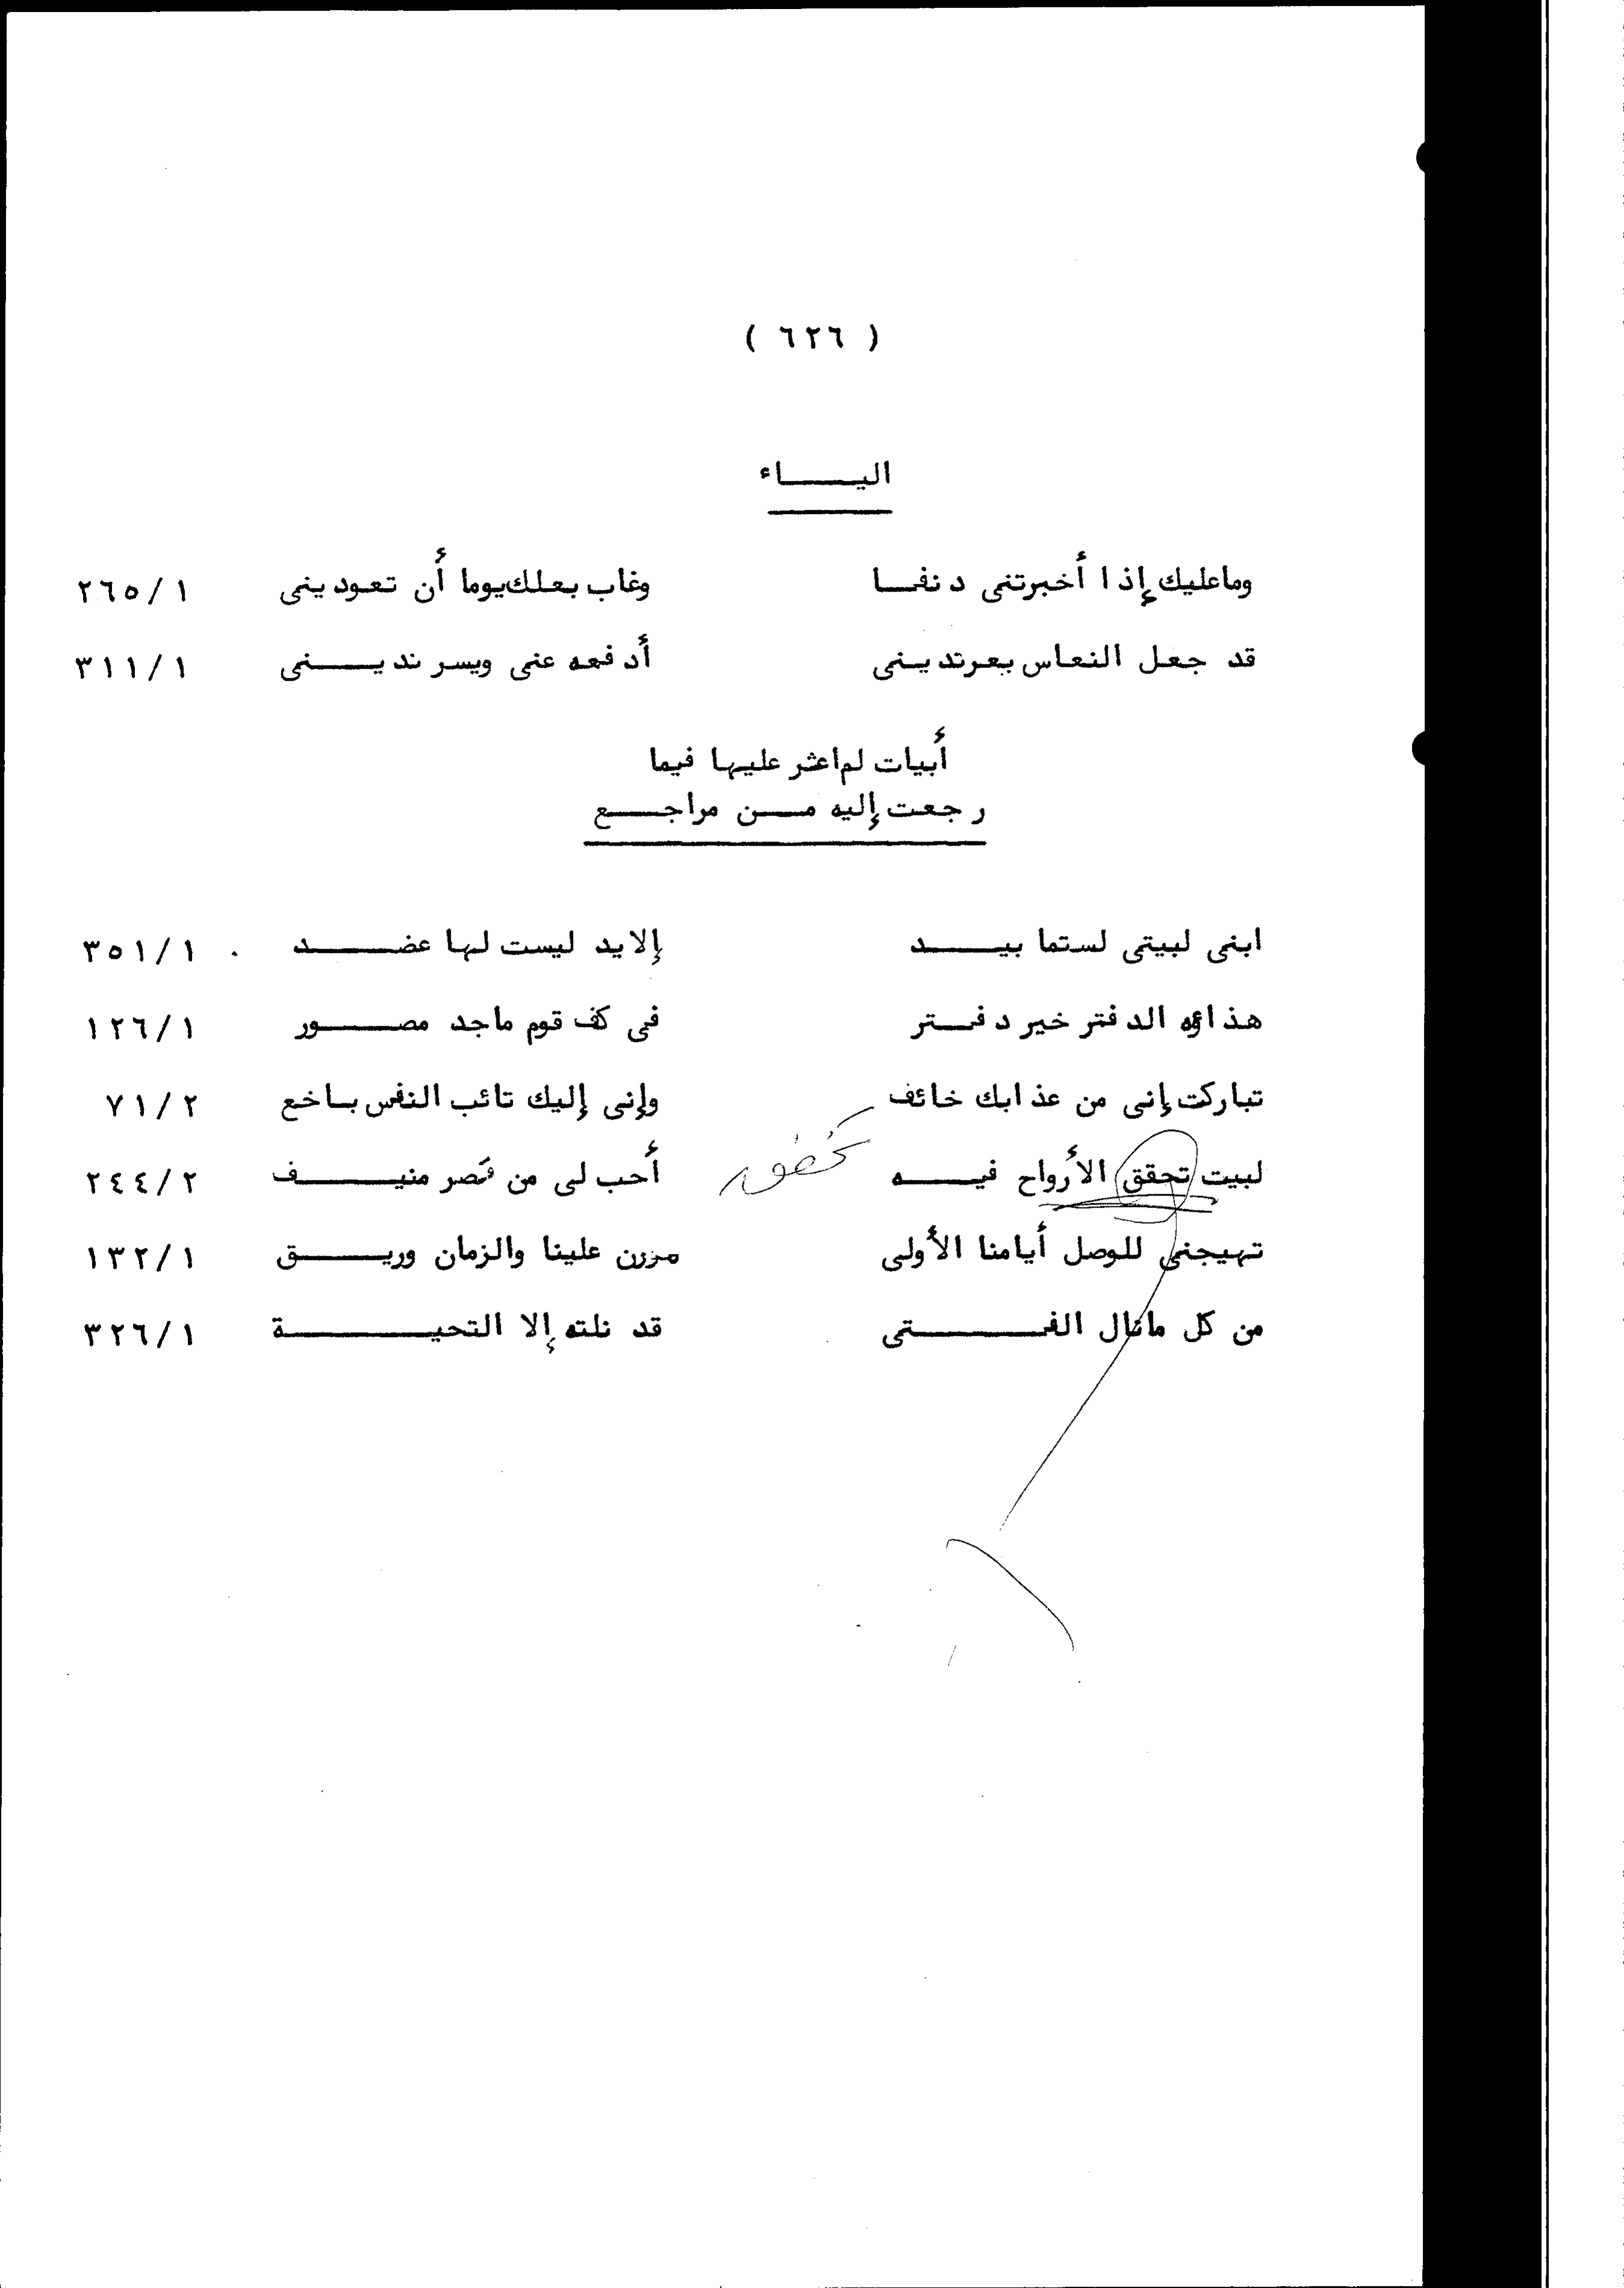 ( ٦٢٦ )
اليـــاء
وماعليك إذا أخبرتنى دنفــا وغاب بعلك يوما أن تعودينى ٢٦٥/١
قد جعل النعاس يعرتدينى أدفعه عنى ويسرنديــنى ٣١١/١
أبيات لم اعثر عليها فيما
رجعت إليه مــن مراجــع
ابنى لبيتى لستما بيــد إلايد ليست لها عضــد ٣٥١/١
هذا الدفتر خير دفــتر فى كف قوم ماجد مصــور ١٢٦/١
تباركت إنى من عذابك خائف وإنى إليك تائب النفس باخع ٧١/٢
لبيت تحقق الأرواح فيــه أحب لى من قصر منيــف ٢٤٤/٢
تخفق
تهيجنى للوصل أيامنا الأولى مررن علينا والزمان وريــق ١٣٢/١
من كل مانال الفــتى قد نلته إلا التحيــة ٣٢٦/١